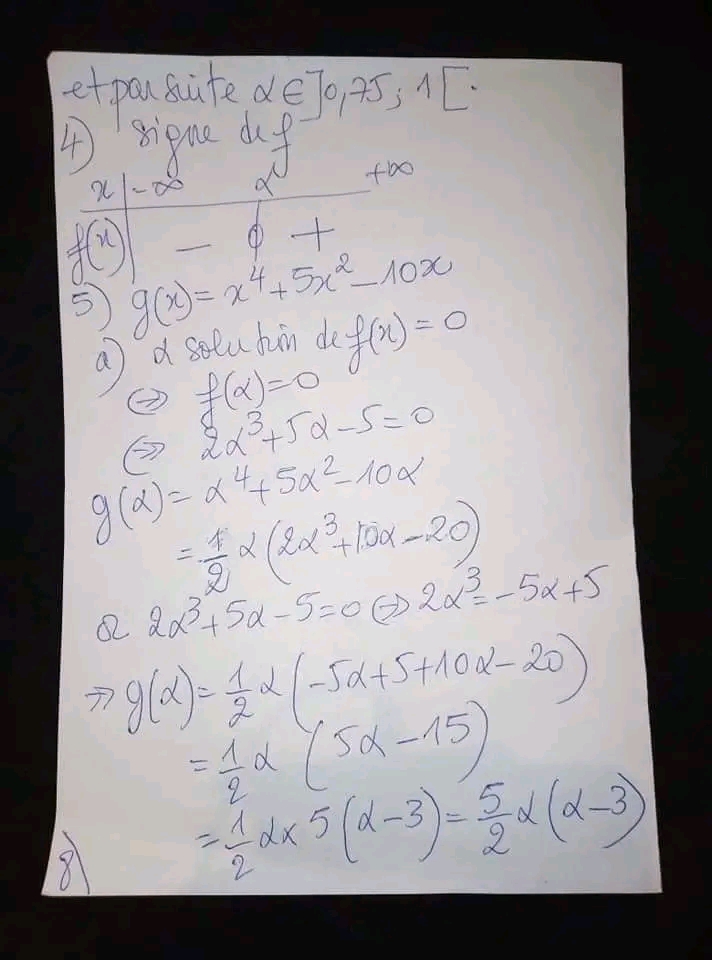 et par suite α ∈ ]0,75 ; 1[.
4) signe de f
x | -∞ α +∞
f(x) | - 0 +
5) g(x) = x⁴ + 5x² - 10x
a) α solution de f(x) = 0
⇔ f(α) = 0
⇔ 2α³ + 5α - 5 = 0
g(α) = α⁴ + 5α² - 10α
= 1/2 α (2α³ + 10α - 20)
or 2α³ + 5α - 5 = 0 ⇔ 2α³ = -5α + 5
⇒ g(α) = 1/2 α (-5α + 5 + 10α - 20)
= 1/2 α (5α - 15)
= 1/2 α × 5 (α - 3) = 5/2 α (α - 3)
8)